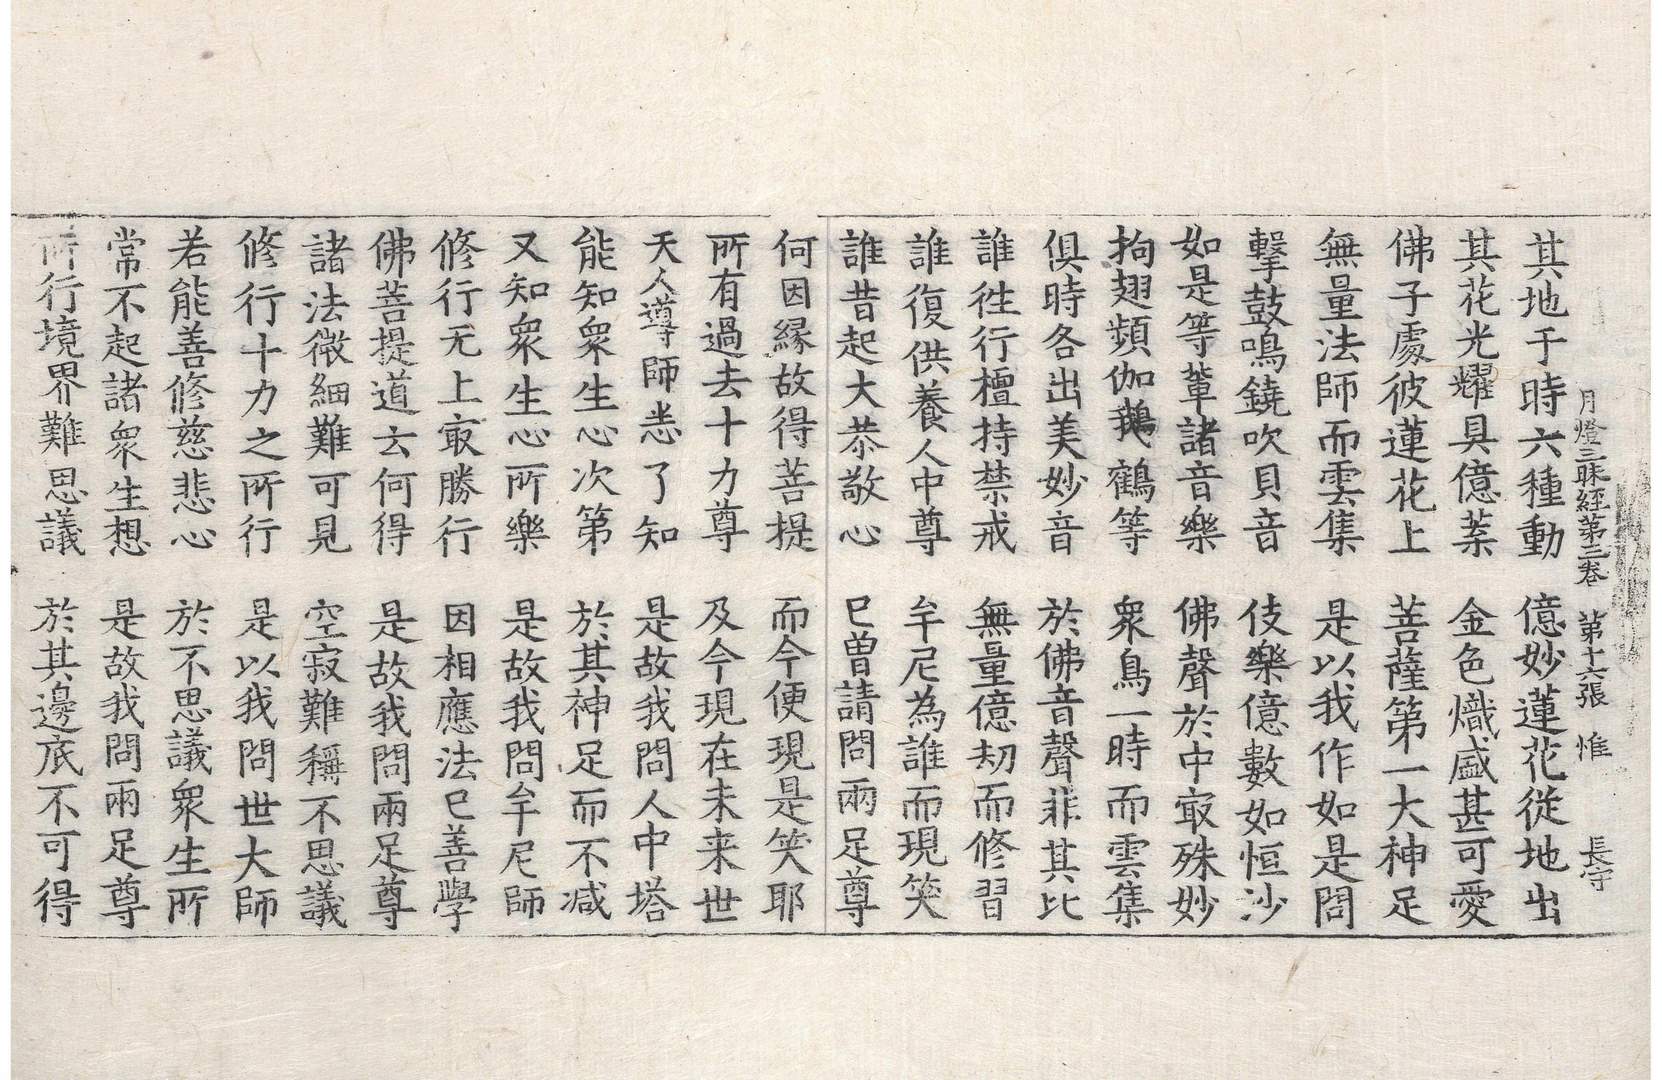 月燈三昧經第三卷 第十六張 惟 長守
其地于時六種動 億妙蓮花從地出
其花光耀具億葉 金色熾盛甚可愛
佛子處彼蓮花上 菩薩第一大神足
無量法師而雲集 是以我作如是問
擊鼓鳴鐃吹貝音 伎樂億數如恒沙
如是等輩諸音樂 佛聲於中㝡殊妙
拘翅頻伽鵝鶴等 衆鳥一時而雲集
俱時各出美妙音 於佛音聲非其比
誰徃行檀持禁戒 無量億劫而修習
誰復供養人中尊 牟尼為誰而現笑
誰昔起大恭敬心 已曽請問兩足尊
何因緣故得菩提 而今便現是笑耶
所有過去十力尊 及今現在未来世
天人導師悉了知 是故我問人中塔
能知衆生心次第 於其神足而不减
又知衆生心所樂 是故我問牟尼師
修行无上㝡勝行 因相應法已善學
佛菩提道云何得 是故我問兩足尊
諸法微細難可見 空寂難稱不思議
修行十力之所行 是以我問世大師
若能善修慈悲心 於不思議衆生所
常不起諸衆生想 是故我問兩足尊
所行境界難思議 於其邊底不可得